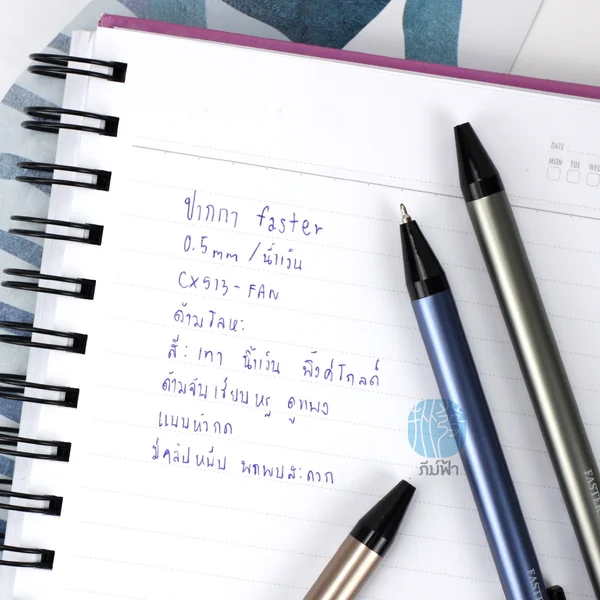 ปากกา faster
0.5mm / น้ำเงิน
CX513-FAN
ด้ามโลหะ
สี: เทา น้ำเงิน พิ้งค์โกลด์
ด้ามจับเรียบหรู ดูแพง
แบบหัวกด
มีคลิปหนีบ พกพาสะดวก
DATE
MON TUE WE
ภีม์ฟ้า
FASTER
FASTER